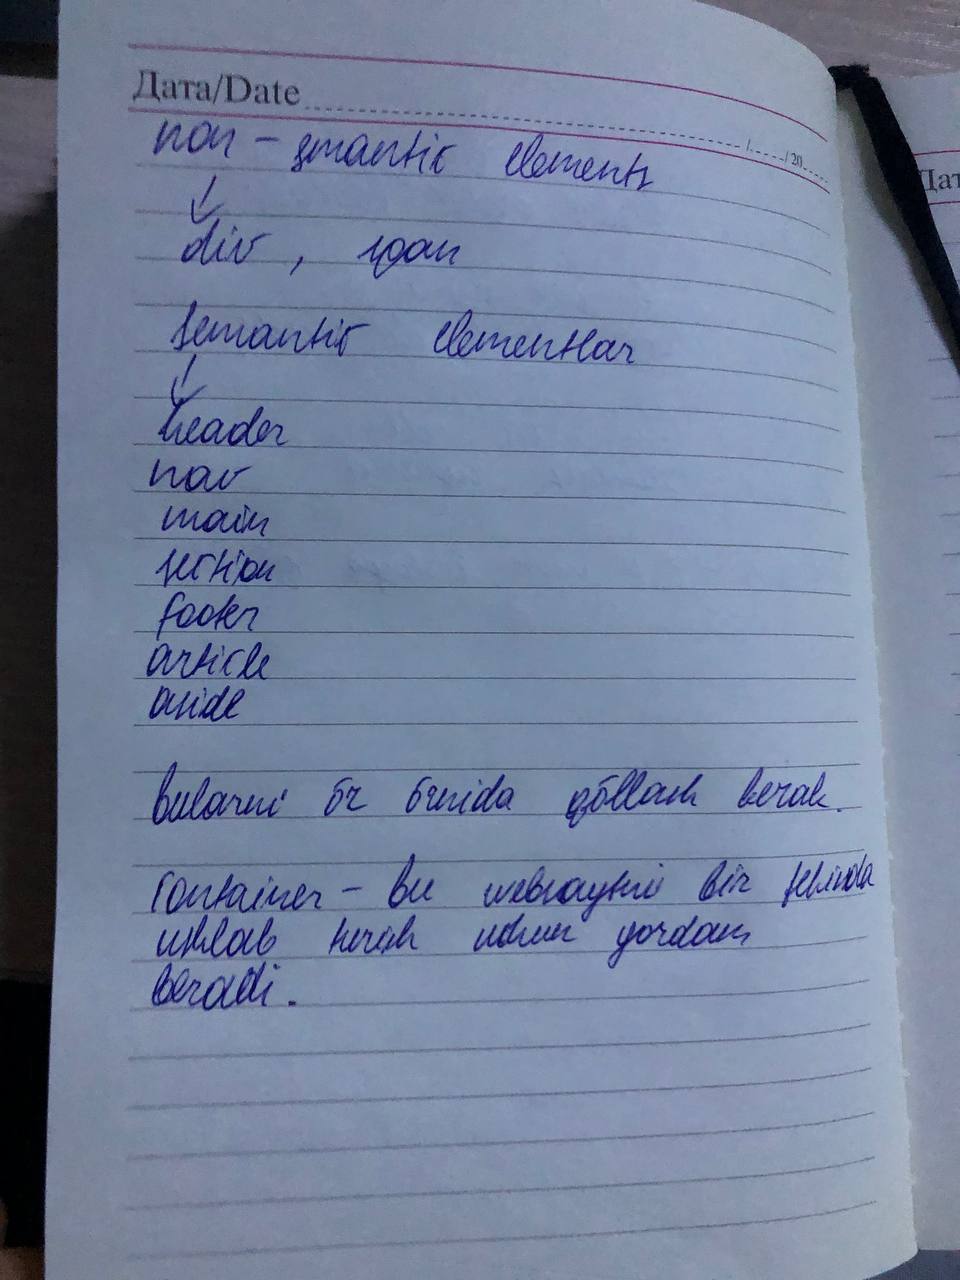 Дата/Date ........ /...../ 20.....
Дат
non - smantic elements
div , span
semantic elementlar
header
nav
main
section
footer
article
aside
bularni õz õrnida qõllash kerak.
Container - bu websaytni bir tekisda
ushlab turish uchun yordam
beradi.